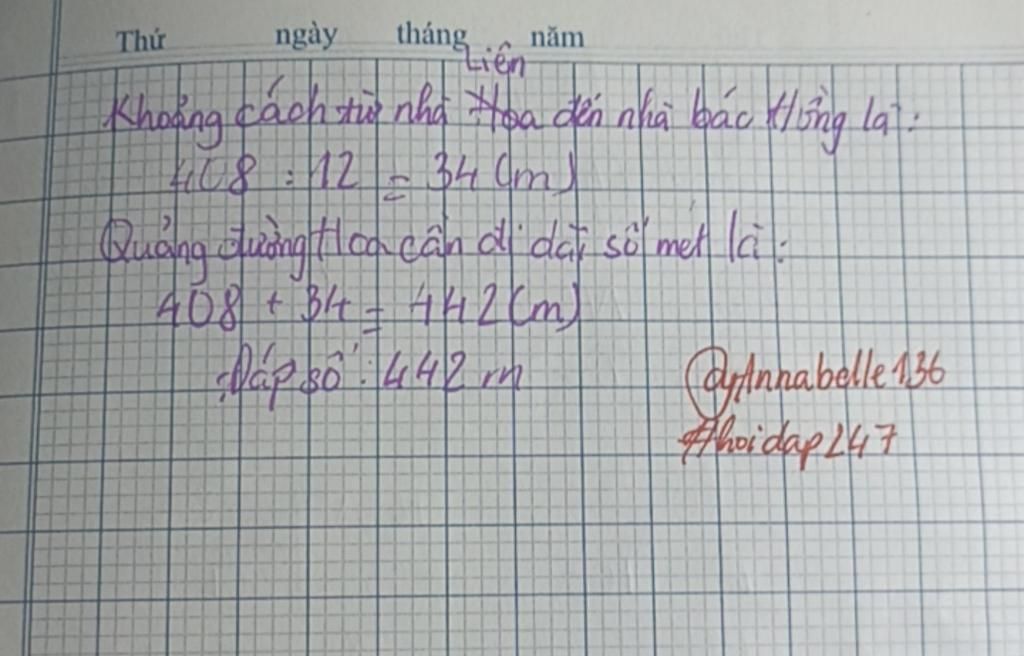 Thứ ngày tháng năm
Liên
Khoảng cách từ nhà Hoa đến nhà bác Hồng là:
408 : 12 = 34 (m)
Quảng đường Hoa cần đi dài số mét là:
408 + 34 = 442 (m)
Đáp số : 442 m
@yAnnabelle136
#hoidap247